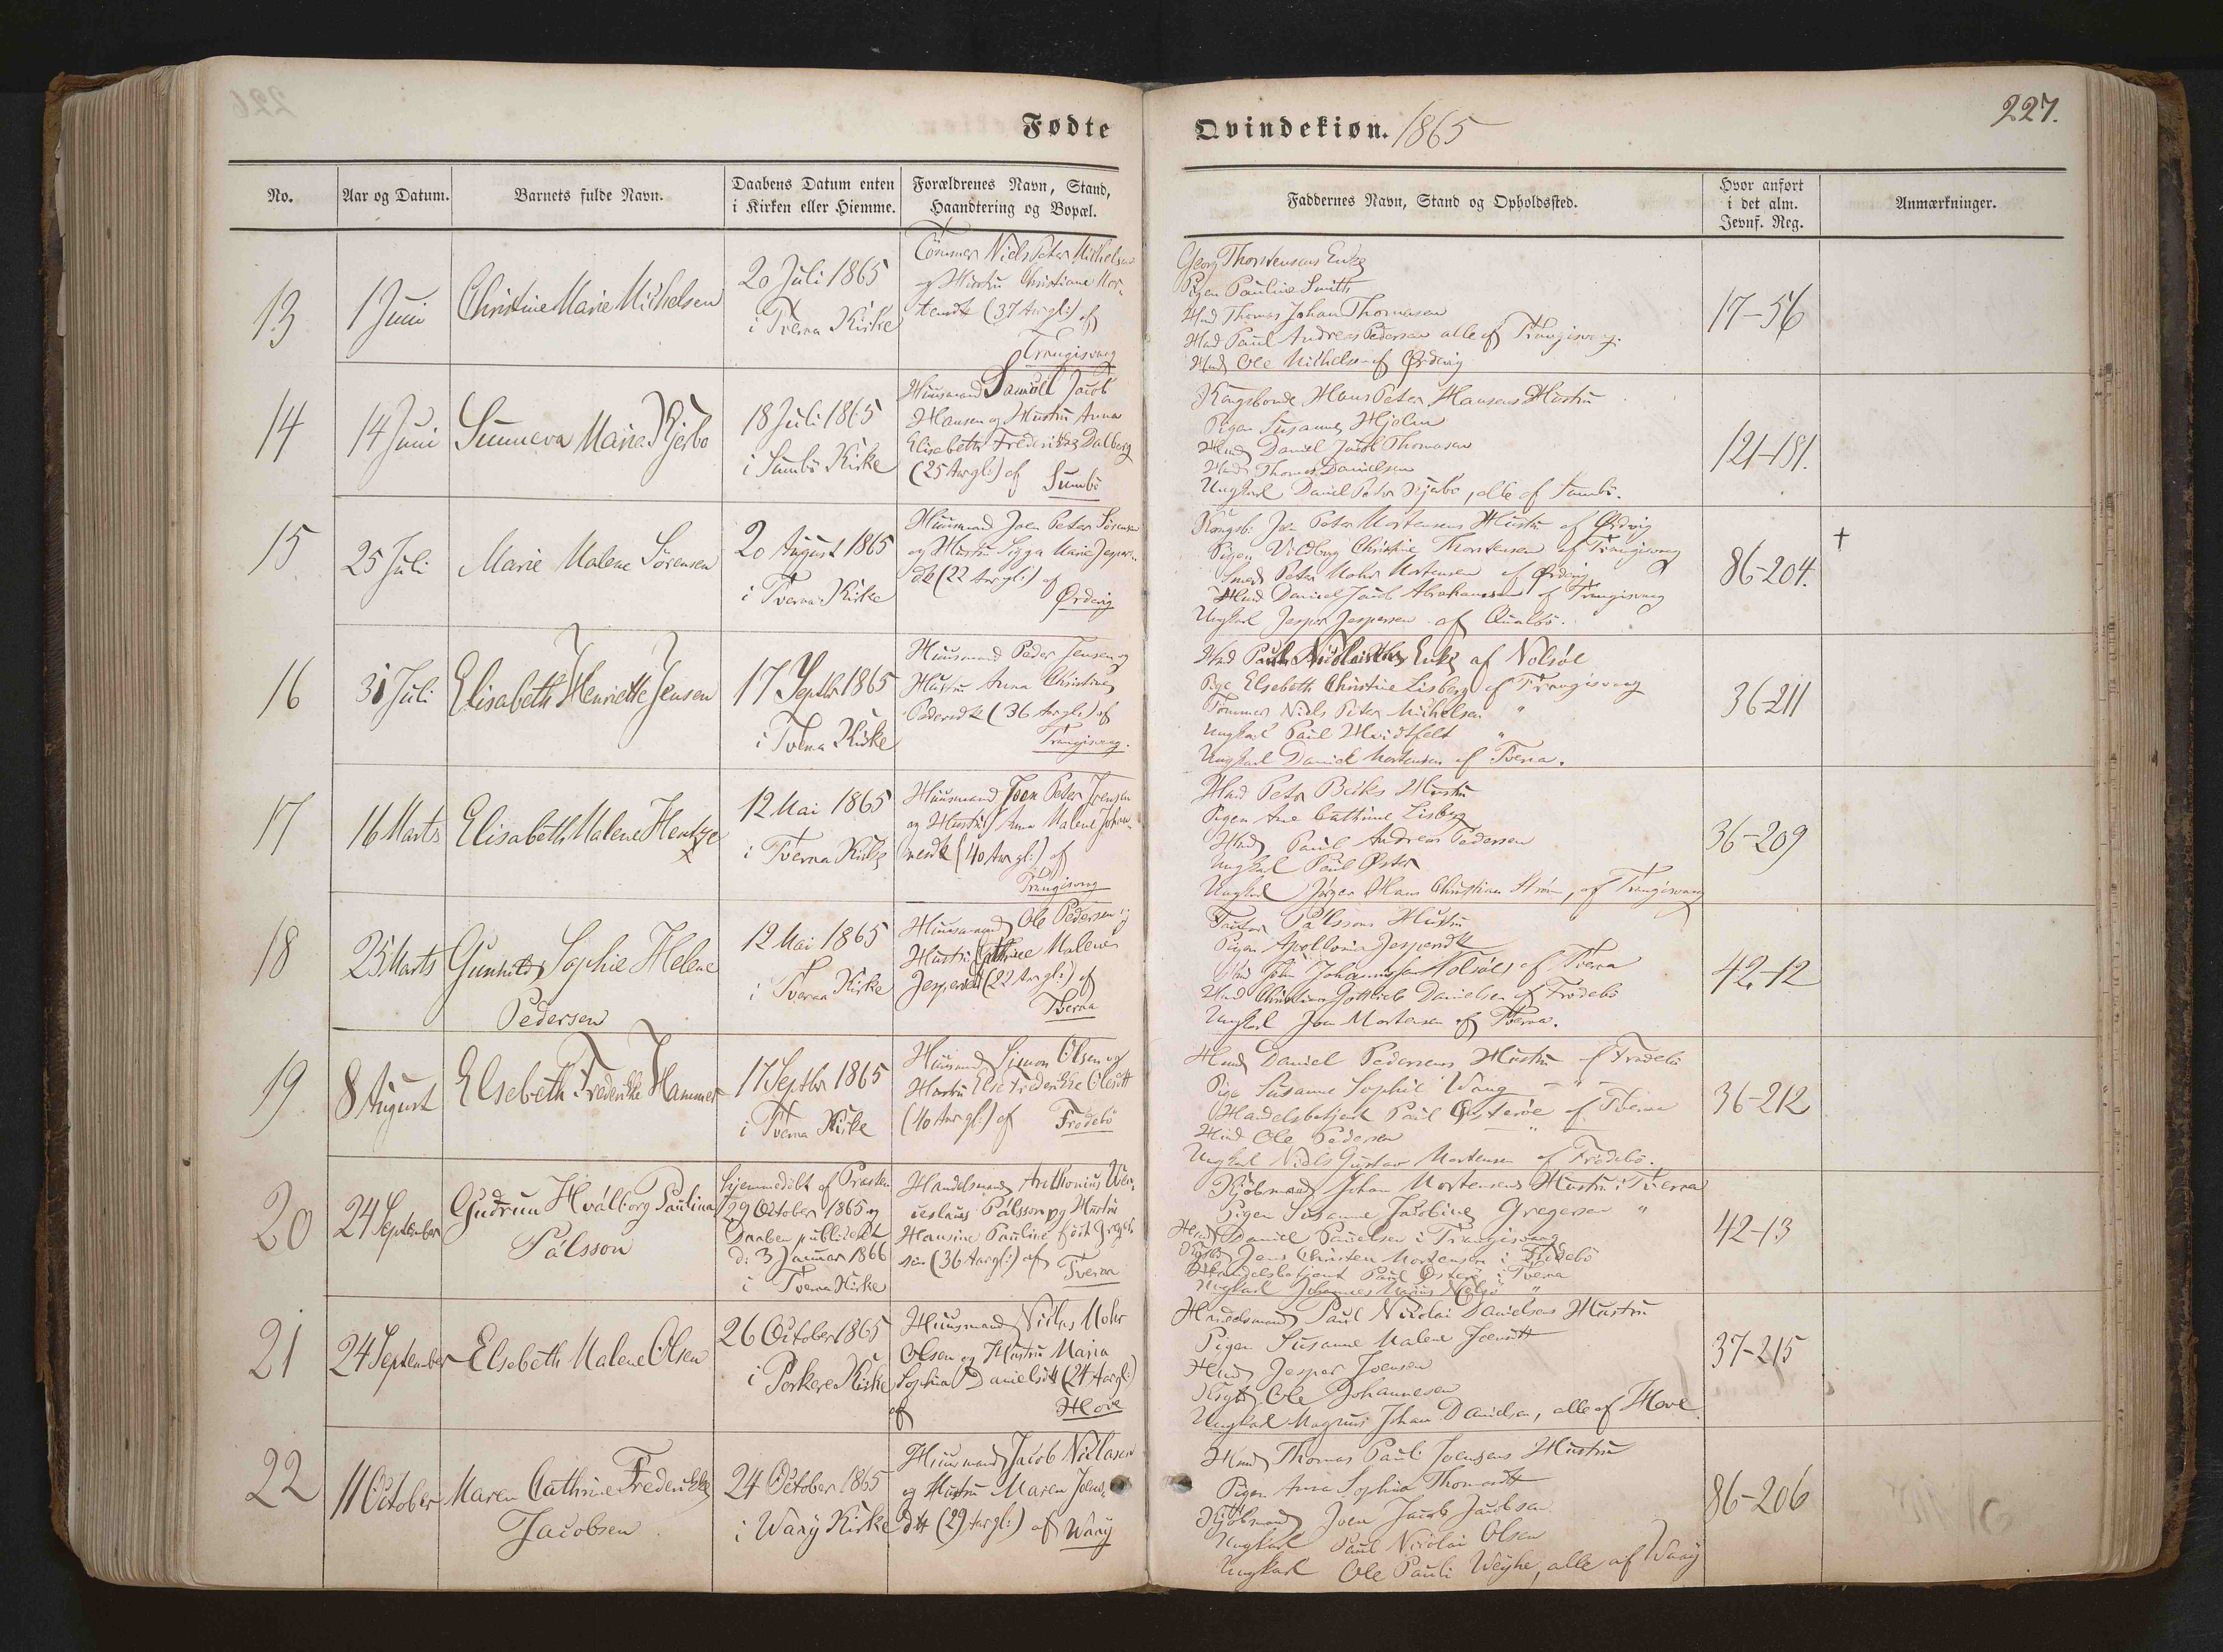 Fødte
Qvindekiøn. 1865
227.
No.
Aar og Datum.
Barnets fulde Navn.
Daabens Datum enten
i Kirken eller Hiemme.
Forældrenes Navn, Stand,
Haandtering og Bopæl.
Faddernes Navn, Stand og Opholdssted.
Hvor anført
i det alm.
Jevnf. Reg.
Anmærkninger.
13
1 Juni
Christine Marie Michelsen
20 Juli 1865
i Tverraa Kirke
Tømmer Niels Peter Michelsen
og Hustru Christiane Mor-
tensdt (37 Aar gl:) af
Trangisvaag
Georg Thorstensens Enke
Pigen Pauline Smith
Hmd Thomas Johan Thomasen
Hmd Paul Andreas Pedersen alle af Trangisvaag.
Hmd Ole Michelsen af Ørdevig
17-56
14
14 Juni
Sunneva Maria Kjelbo
18 Juli 1865
i Sumbø Kirke
Huusmand Samuel Jacob
Hansen og Hustru Anna
Elisabeth Frederikke Dalberg
(25 Aar gl:) af Sumbø
Kongsbonde Hans Peter Hansens Hustru
Pigen Susanne Hjolm
Hmd Daniel Jacob Thomasen
Hmd Thomas Danielsen
Ungkarl Daniel Peter Kjelbo, alle af Sumbø.
121-181.
15
25 Juli
Marie Malene Sørensen
20 August 1865
i Tverraa Kirke
Huusmand Joen Peter Sørensen
og Hustru Sigga Marie Jespers-
dt (22 Aar gl:) af
Ørdevig
Kongsb: Joen Peter Mortensens Hustru af Ørdevig
Pigen Vilborg Christine Thorstensen af Trangisvaag
Smed Peter Mohr Mortensen af Ørdevig
Hmd Daniel Jacob Abrahamsen af Trangisvaag
Ungkarl Jesper Jespersen af Qualbø.
86-204.
†
16
31 Juli
Elisabeth Henriette Jensen
17 Septbr 1865
i Tverraa Kirke
Huusmand Peder Jensen og
Hustru Anna Christine
Pedersdt (36 Aar gl:) af
Trangisvaag.
Enke af Nolsøe
Pige Elsebeth Christine Lisberg af Trangisvaag
Tømmer Niels Peter Michelsen "
Ungkarl Paul Hvidtfelt "
Ungkarl Daniel Mortensen af Tverraa.
36-211
17
16 Marts
Elisabeth Malene Hentze
12 Mai 1865
i Tverraa Kirke
Huusmand Joen Peter Joensen
og Hustru Anna Malene Johan-
nesdt (40 Aar gl:) af
Trangisvaag
Hmd Peter Hustru
Pigen Ane Cathrine Lisberg
Hmd Paul Andreas Pedersen
Ungkarl Poul Øster
Ungkarl Jørgen Hans Christian Strøm, af Trangisvaag
36-209
18
25 Marts
Gunhild Sophie Helene
Pedersen
12 Mai 1865
i Tverraa Kirke
Huusmand Ole Pedersen og
Hustru Cathrine Malene
Jespersdt (22 Aar gl:) af
Tverraa
Factor Pálssons Hustru
Pigen Apollonia Jespersdt
Hmd Johannessen Nolsøe af Tverraa
Hmd Christian Gottlieb Danielsen af Frodebø
Ungkarl Joen Mortensen af Tverraa.
42-12
19
8 August
Elsebeth Frederikke Hammer
17 Septbr 1865
i Tverraa Kirke
Huusmand Simon Olsen og
Hustru Else Frederikke Olesdtt
(40 Aar gl:) af Frodebø
Hmd Daniel Pedersens Hustru af Frodebø
Pige Susanne Sophie Waag - " -
Handelsbetjent Paul Østerøe af Tverraa
Hmd Ole Pedersen "
Ungkarl Niels Gustav Mortensen af Frodebø.
36-212
20
24 September
Gudrun Hválborg Paulina
Pálsson
hjemmedøbt af Præsten
29 October 1865 og
Daaben publiceret
d: 3 Januar 1866
i Tverraa Kirke
Handelsmand Anthonius Wen-
ceslaus Pálsson og Hustru
Hansine Pauline født Greger-
sen (36 Aar gl:) af Tverraa
Kjøbmand Johan Mortensens Hustru i Tverraa
Pigen Susanne Jacobine Gregersen "
Hmd Daniel Poulsen i Trangisvaag
Kgsbd Jens Christen Mortensen i Frodebø
Handelsbetjent Paul Østerø i Tverraa
Ungkarl Johannes Marius Nolsø "
42-13
21
24 September
Elsebeth Malene Olsen
26 October 1865
i Porkere Kirke
Huusmand Niclas Mohr
Olsen og Hustru Maria
Sophia Danielsdtt (24 Aar gl:)
af Hove
Handelsmand Paul Nicolai Danielsens Hustru
Pigen Susanne Malene Joensdtt
Hmd Jesper Joensen
Ole Johannesen
Ungkarl Magnus Johan Danielsen, alle af Hove
37-215
22
11 October
Maren Cathrine Frederikke
Jacobsen
24 October 1865
i Waag Kirke
Huusmand Jacob Niclasen
og Hustru Maren Joens-
dtt (29 Aar gl:) af Waag
Hmd Thomas Pauli Joensens Hustru
Pigen Anna Sophia Thomasdtt
Kjøbmand Joen Jacob Jacobsen
Ungkarl Paul Nicolai Olsen
Ungkarl Ole Pauli Weyhe, alle af Waag
86-206